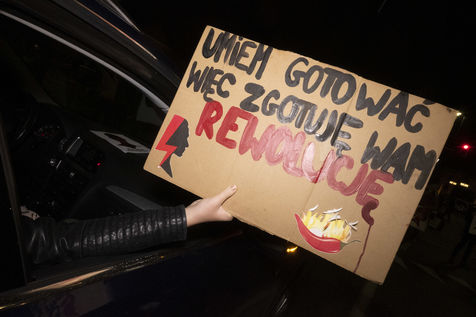 UMIEM GOTOWAĆ
WIĘC ZGOTUJĘ WAM
REWOLUCJĘ